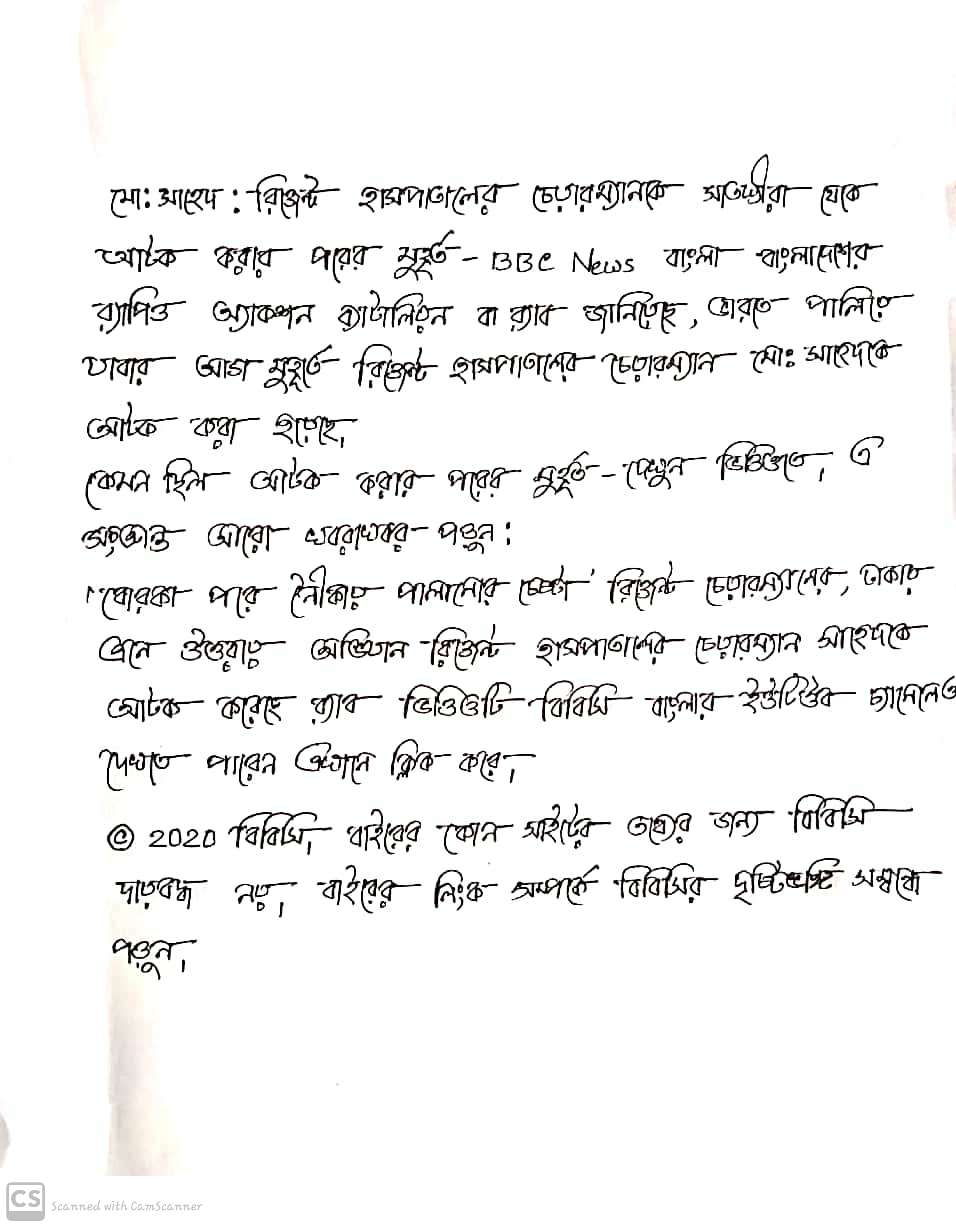 মো: সাহেদ : রিজেন্ট হাসপাতালের চেয়ারম্যানকে সাতক্ষীরা থেকে
আটক করার পরের মুহূর্ত - BBC News বাংলা বাংলাদেশের
র‍্যাপিড অ্যাকশন ব্যাটালিয়ন বা র‍্যাব জানিয়েছে, ভারতে পালিয়ে
যাবার আগ মুহূর্তে রিজেন্ট হাসপাতালের চেয়ারম্যান মো: সাহেদকে
আটক করা হয়েছে।
কেমন ছিল আটক করার পরের মুহূর্ত - দেখুন ভিডিওতে। এ
সংক্রান্ত আরো খবরাখবর পড়ুন:
'বোরকা পরে নৌকায় পালানোর চেষ্টা' রিজেন্ট চেয়ারম্যানের, ঢাকায়
এনে উত্তরায় অভিযান রিজেন্ট হাসপাতালের চেয়ারম্যান সাহেদকে
আটক করেছে র‍্যাব ভিডিওটি বিবিসি বাংলার ইউটিউব চ্যানেলেও
দেখতে পারেন এখানে ক্লিক করে।
© 2020 বিবিসি। বাইরের কোন সাইটের তথ্যের জন্য বিবিসি
দায়বদ্ধ নয়। বাইরের লিংক সম্পর্কে বিবিসির দৃষ্টিভঙ্গি সম্বন্ধে
পড়ুন।
CS Scanned with CamScanner